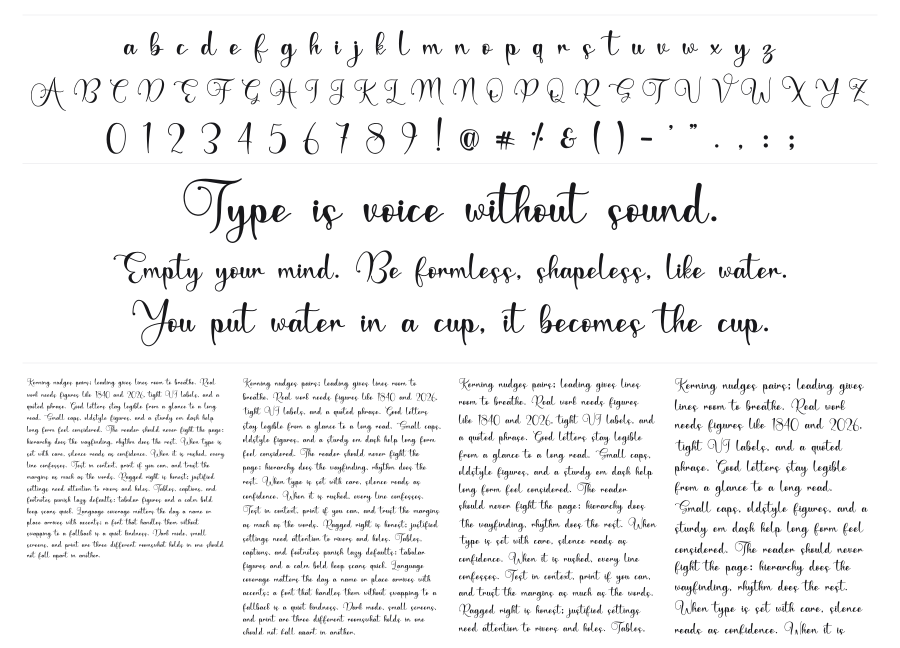 a b c d e f g h i j k l m n o p q r s t u v w x y z
A B C D E F G H I J K L M N O P Q R S T U V W X Y Z
0 1 2 3 4 5 6 7 8 9 ! @ # % & ( ) - ' " . , : ;
Type is voice without sound.
Empty your mind. Be formless, shapeless, like water.
You put water in a cup, it becomes the cup.
Kerning nudges pairs; leading gives lines room to breathe. Real
work needs figures like 1840 and 2026, tight UI labels, and a
quoted phrase. Good letters stay legible from a glance to a long
read. Small caps, oldstyle figures, and a sturdy em dash help
long form feel considered. The reader should never fight the page:
hierarchy does the wayfinding, rhythm does the rest. When type is
set with care, silence reads as confidence. When it is rushed, every
line confesses. Test in context, print if you can, and trust the
margins as much as the words. Ragged right is honest; justified
settings need attention to rivers and holes. Tables, captions, and
footnotes punish lazy defaults: tabular figures and a calm bold
keep scans quick. Language coverage matters the day a name or
place arrives with accents; a font that handles them without
swapping to a fallback is a quiet kindness. Dark mode, small
screens, and print are three different rooms what holds in one should
not fall apart in another.
Kerning nudges pairs; leading gives lines room to
breathe. Real work needs figures like 1840 and 2026,
tight UI labels, and a quoted phrase. Good letters
stay legible from a glance to a long read. Small caps,
oldstyle figures, and a sturdy em dash help long form
feel considered. The reader should never fight the
page: hierarchy does the wayfinding, rhythm does the
rest. When type is set with care, silence reads as
confidence. When it is rushed, every line confesses.
Test in context, print if you can, and trust the margins
as much as the words. Ragged right is honest; justified
settings need attention to rivers and holes. Tables,
captions, and footnotes punish lazy defaults: tabular
figures and a calm bold keep scans quick. Language
coverage matters the day a name or place arrives with
accents; a font that handles them without swapping to a
fallback is a quiet kindness. Dark mode, small screens,
and print are three different rooms what holds in one
should not fall apart in another.
Kerning nudges pairs; leading gives lines
room to breathe. Real work needs figures
like 1840 and 2026, tight UI labels, and
a quoted phrase. Good letters stay legible
from a glance to a long read. Small caps,
oldstyle figures, and a sturdy em dash help
long form feel considered. The reader
should never fight the page: hierarchy does
the wayfinding, rhythm does the rest. When
type is set with care, silence reads as
confidence. When it is rushed, every line
confesses. Test in context, print if you can,
and trust the margins as much as the words.
Ragged right is honest; justified settings
need attention to rivers and holes. Tables,
Kerning nudges pairs; leading gives
lines room to breathe. Real work
needs figures like 1840 and 2026,
tight UI labels, and a quoted
phrase. Good letters stay legible
from a glance to a long read.
Small caps, oldstyle figures, and a
sturdy em dash help long form feel
considered. The reader should never
fight the page: hierarchy does the
wayfinding, rhythm does the rest.
When type is set with care, silence
reads as confidence. When it is